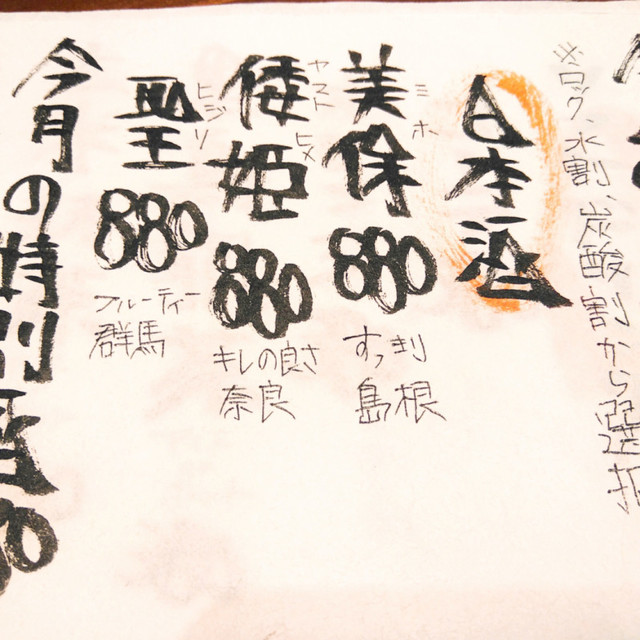 ※ロック、水割、炭酸割から選択
日本酒
美保 ミホ
880
すっきり
島根
倭姫 ヤマトヒメ
880
キレの良さ
奈良
聖 ヒジリ
880
フルーティー
群馬
今月の特別酒